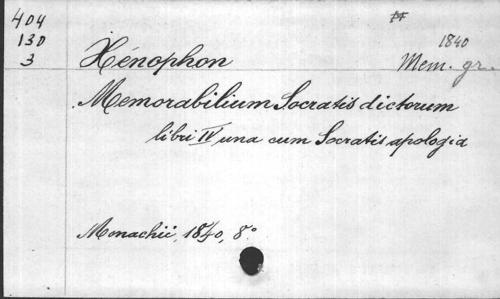 404
130
3
1840
Xénophon
Mem. gr.
Memorabilium Socratis dictorum
libri IV una cum Socratis apologia
Monachii, 1840, 8°